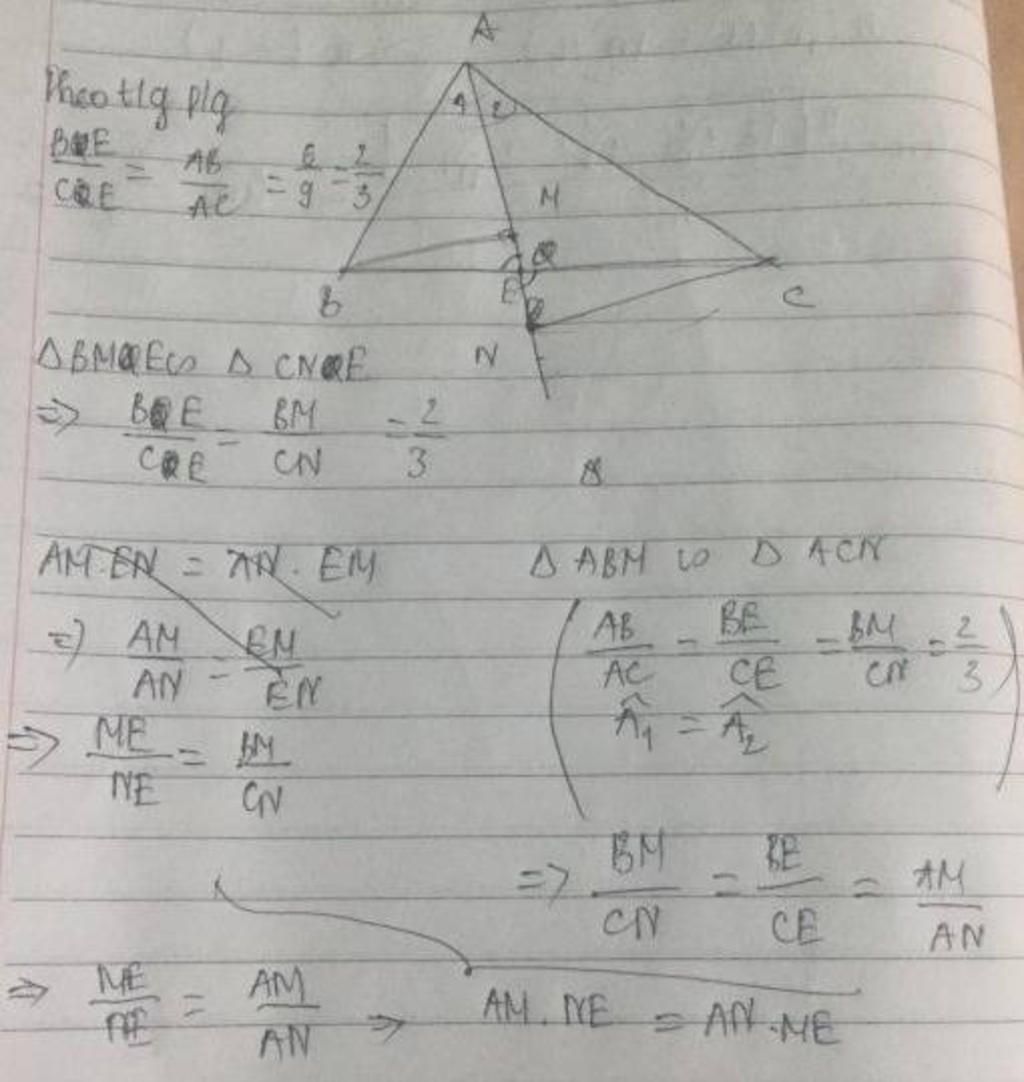 A
Theo t/g p/g
BE/CE = AB/AC = 6/9 = 2/3
1 2
M
B E C
N
Δ BME ∽ Δ CNE
=> BE/CE = BM/CN = 2/3
AM.EN = AN.EM
=> AM/AN = EM/EN
=> ME/NE = BM/CN
Δ ABM ∽ Δ ACN
(AB/AC = BE/CE = BM/CN = 2/3
Â₁ = Â₂)
=> BM/CN = BE/CE = AM/AN
=> ME/NE = AM/AN => AM.NE = AN.ME